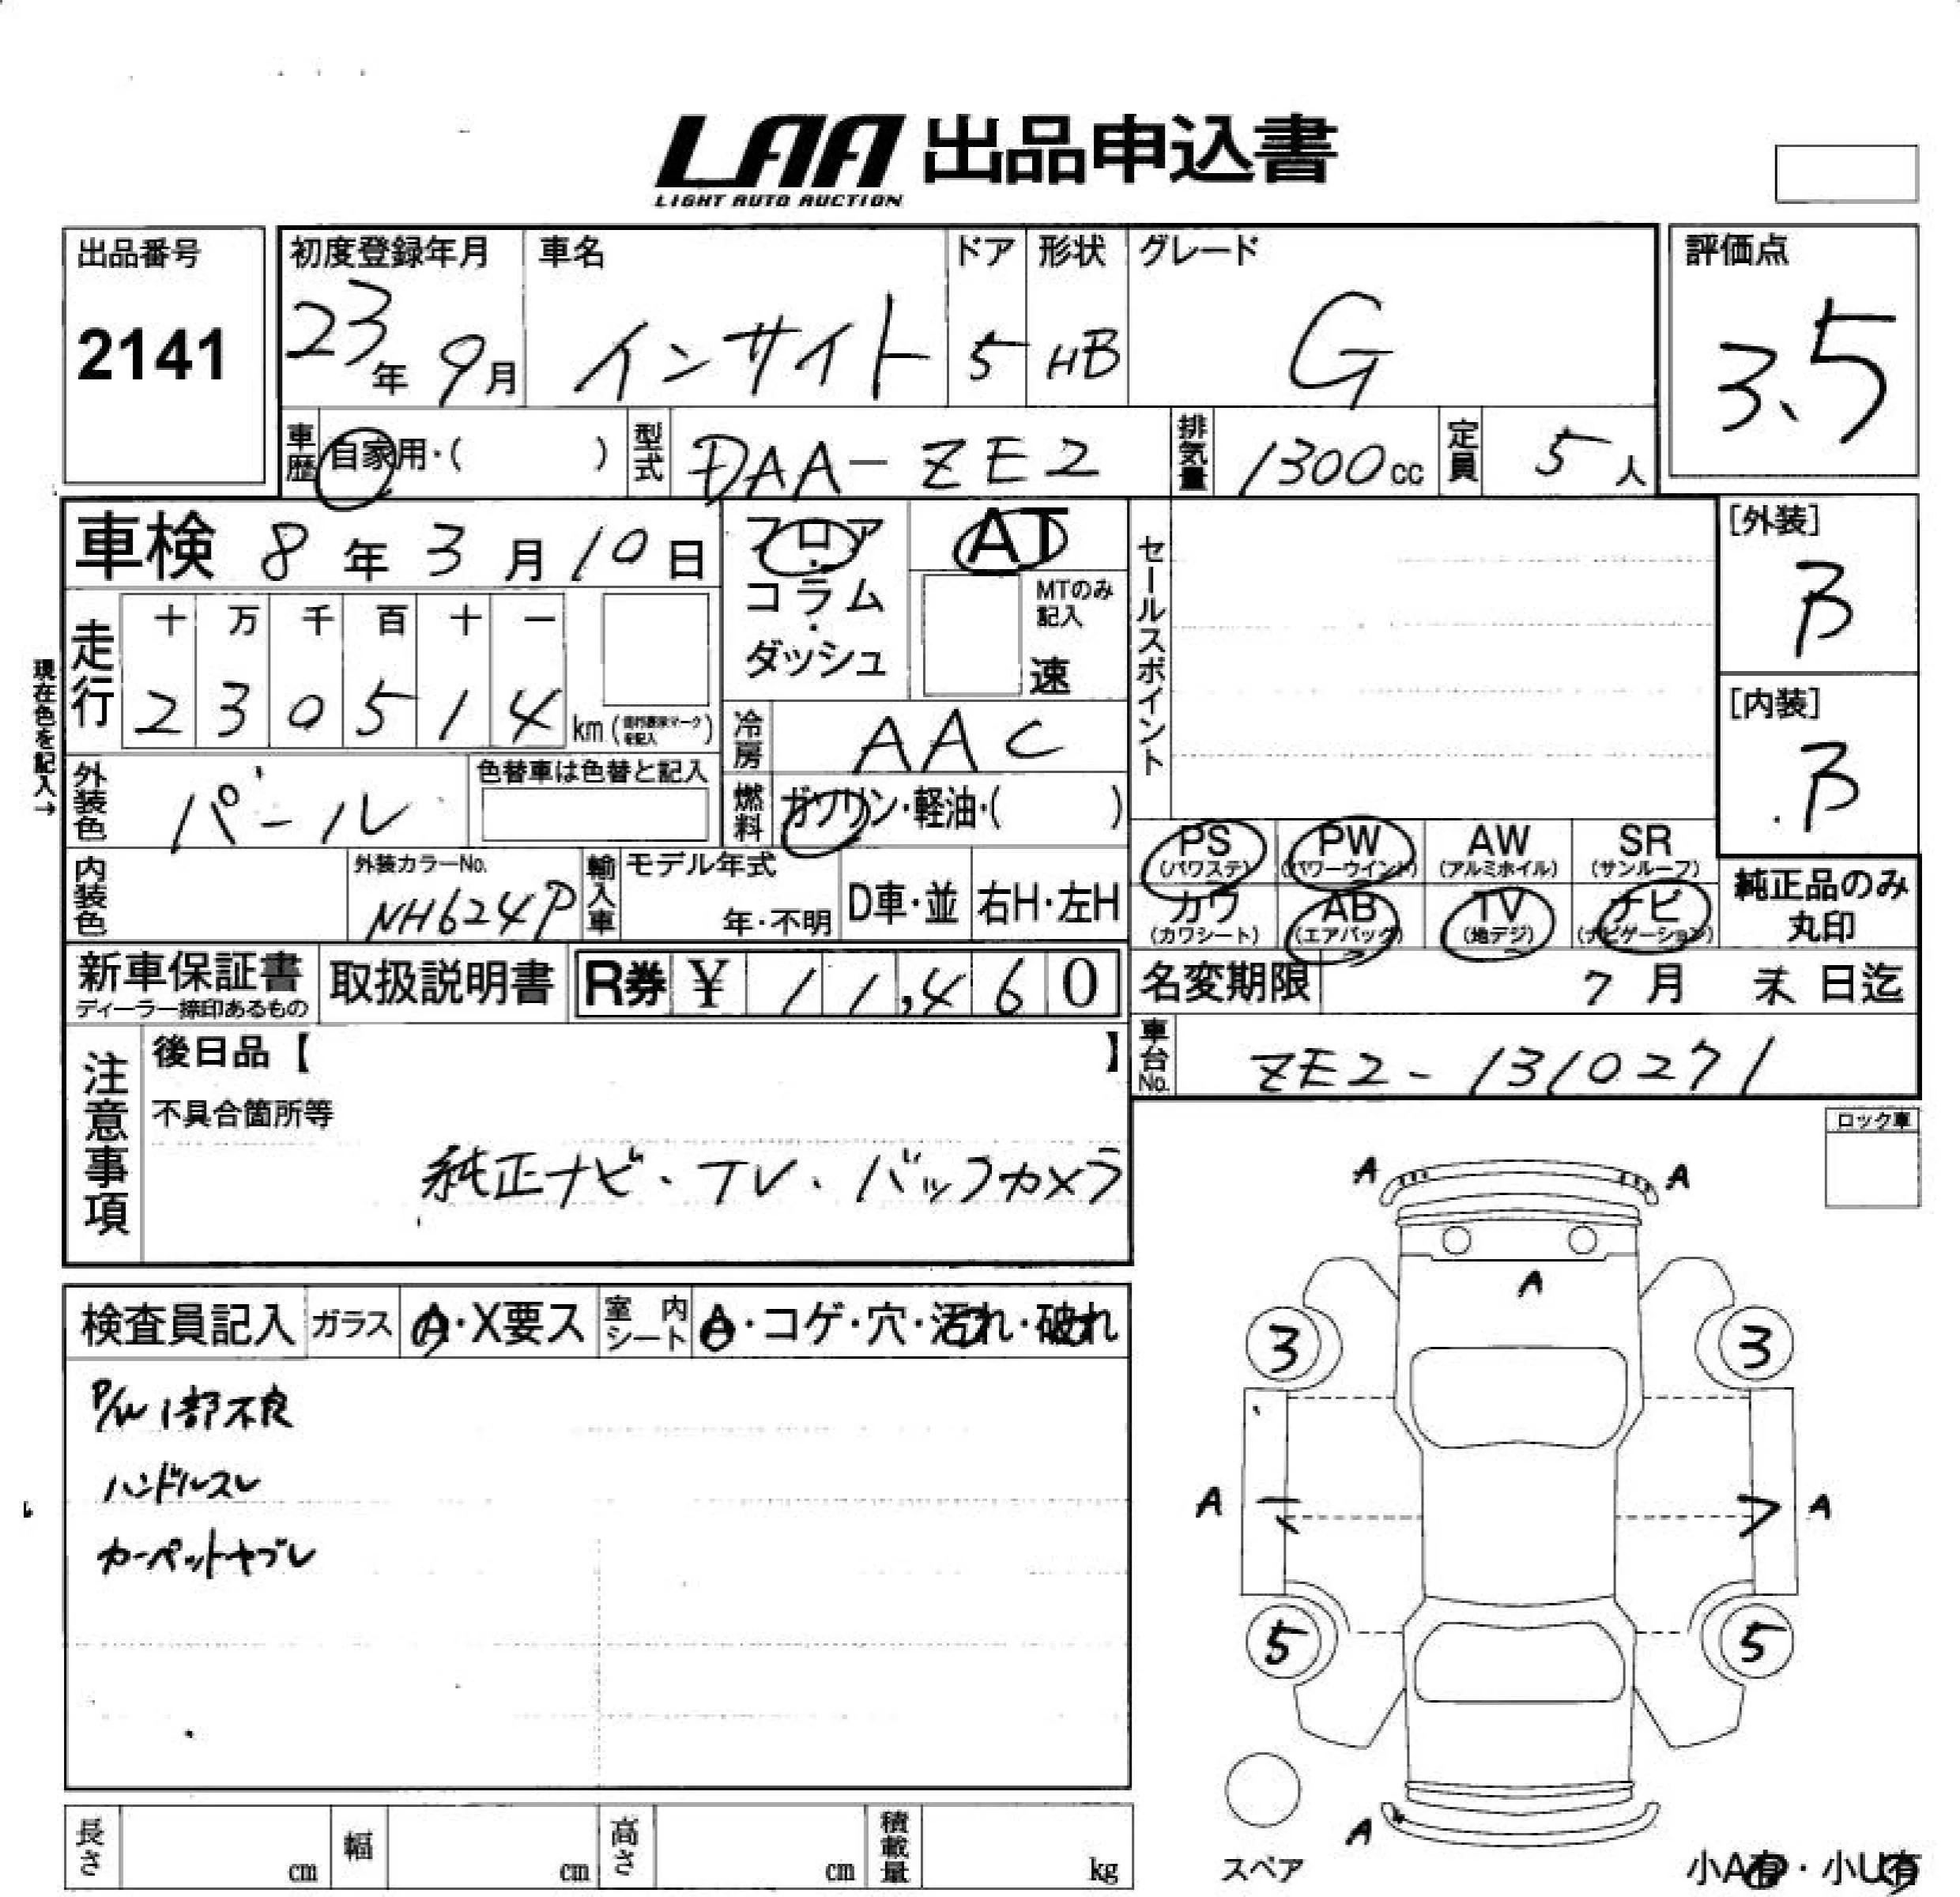 LAA 出品申込書
LIGHT AUTO AUCTION
出品番号
2141
初度登録年月
23年 9月
車名
インサイト
ドア
5
形状
HB
グレード
G
評価点
3.5
車歴
自家用・( )
型式
DAA-ZE2
排気量
1300cc
定員
5人
車検 8年 3月 10日
フロア・コラム・ダッシュ
AT
MTのみ記入
速
セールスポイント
[外装]
B
[内装]
B
現在色を記入→
走行
十 万 千 百 十 一
2 3 0 5 1 4 km
冷房
AAC
外装色
パール
色替車は色替と記入
燃料
ガソリン・軽油・( )
PS
(パワステ)
PW
(パワーウインド)
AW
(アルミホイル)
SR
(サンルーフ)
カワ
(カワシート)
AB
(エアバッグ)
TV
(地デジ)
ナビ
(ナビゲーション)
純正品のみ
丸印
内装色
外装カラーNo.
NH624P
輸入車
モデル年式
年・不明
D車・並
右H・左H
新車保証書
ディーラー捺印あるもの
取扱説明書
R券 ¥ 11,460
名変期限
7月 末日迄
車台No.
ZE2-1310271
注意事項
後日品【 】
不具合箇所等
純正ナビ・TV・バックカメラ
ロック車
検査員記入
ガラス
A・X要ス
室内シート
A・コゲ・穴・汚れ・破れ
P/W 1部不良
ハンドルスレ
カーペットヤブレ
A A
A
3 3
A A
5 5
A
スペア
小A有・小U有
長さ
cm
幅
cm
高さ
cm
積載量
kg